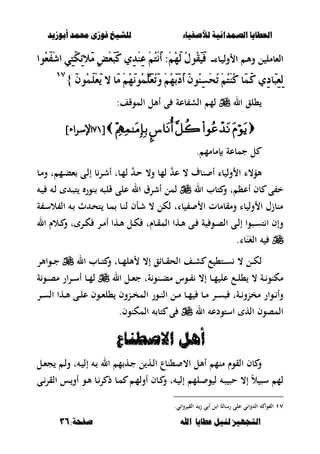 العطايا الصمدانية للأصفياء للشيخ فوزى محمد أبوزيد
العاملين وهم الأولياء۔ فَيَقُولُ لَهُمْ: أَنْتُمْ عِنْدِي كَبَعْضِ مَلاَئِكَتِي اشْفَعُوا
لِعِبَادِي كَمَا كُنْتُمْ تُحْسِنُونَ أَدَبَهُمْ وَتُعَلِّمُونَهُمْ مَا لا يَعْلَمُونَ } ١٧
يطلق الله ﷻ لهم الشفاعة فى أهل الموقف:
﴿ يَوْمَ نَدْعُواْ كُلَّ أُنَاسٍ بِإِمَـٰمِهِمْ ﴾ [٧١الإسراء]
كل جماعة بإمامهم.
هؤلاء الأولياء أصناف لا عدَّ لها ولا حدَّ لها، أشرنا إلى بعضهم، وما
خفى كان أعظم، وكتاب الله ﷻ لمن أشرق الله على قلبه بنوره يتبدى له فيه
منازل الأولياء ومقامات الأصفياء، لكن لا شأن لنا بما يتحدث به الفلاسفة
وإن انتسبوا إلى الصوفية فى هذا المقام، فكل هذا أمر فكرى، وكلام الله
ﷻ فيه الغَنَاء.
لكن لا نستطيع كشف الحقائق إلا لأهلها، وكتاب الله ﷻ جواهر
مكنونة لا يطلع عليها إلا نفوس مضنونة، جعل الله ﷻ لها أسرار مصونة
وأنوار مخزونة، فيسر ما فيها من النور المخزون يطلعون على هذا السر
المصون الذى استودعه الله ﷻ فى كتابه المكنون.
أهل الاصطناع
وكان القوم منهم أهل الاصطناع الذين جذبهم الله به إليه، ولم يجعل
لهم سبيلاً إلا حبيبه ليوصلهم إليه، وكان أولهم كما ذكرنا هو أويس القرنى
١٧ الفواكه الدوانى على رسالة ابن أبي زيد القيروانى.
التجهيز لنيل عطايا الله صفحة:٣٦